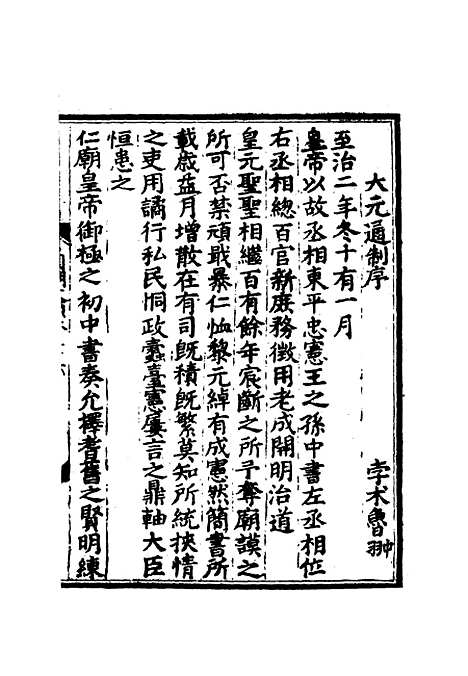 大元通制序
孛术魯翀
至治二年冬十有一月
皇帝以故丞相東平忠憲王之孫中書左丞相位
右丞相總百官新庶務徵用老成開明治道
皇元聖聖相繼百有餘年宸斷之所予奪廟謨之
所可否禁頑戢暴仁恤黎元綽有成憲然簡書所
載歲益月增散在有司既積既繁莫知所統挾情
之吏用譎行私民恫政蠹臺憲屢言之鼎軸大臣
恒患之
仁廟皇帝御極之初中書奏允擇耆舊之賢明練